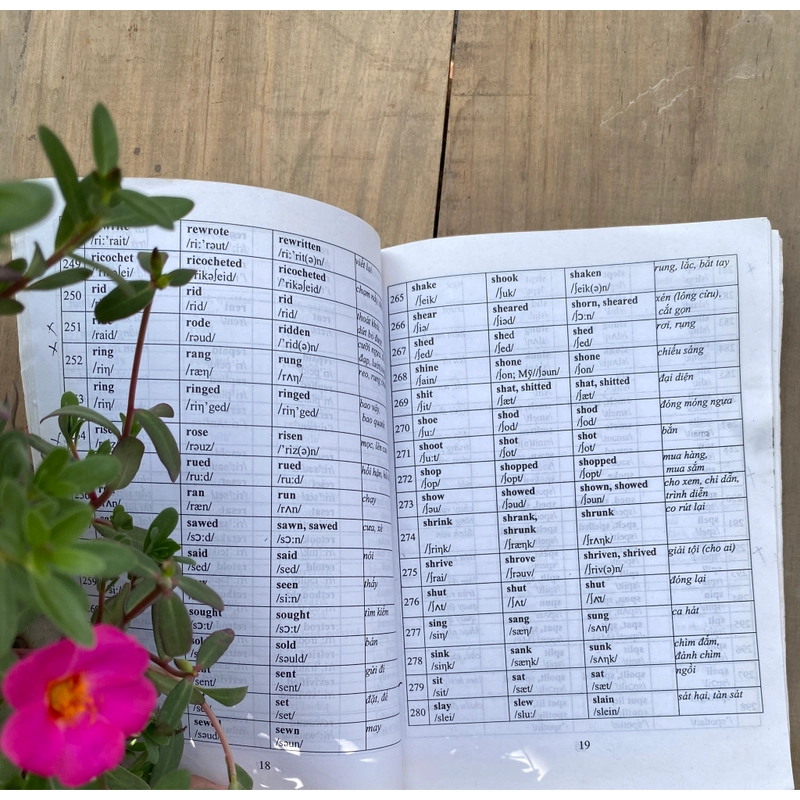 rewrote rewritten
/ri:'rait/ /ri:'rəut/ /ri:'rit(ə)n/ viết lại
249 ricochet ricocheted ricocheted
/'rikəʃeid/ /'rikəʃeid/
250 rid rid rid
/rid/ /rid/ /rid/
251 rode ridden
/raid/ /rəud/ /'rid(ə)n/
252 ring rang rung
/riŋ/ /ræŋ/ /rʌŋ/
ring ringed ringed
/riŋ/ /riŋ'ged/ /riŋ'ged/ bao vây, bao quanh
rose risen
/rəuz/ /'riz(ə)n/
rued rued
/ru:d/ /ru:d/
ran run
/ræn/ /rʌn/ chạy
sawed sawn, sawed
/sɔ:d/ /sɔ:n/ cưa, xẻ
said said
/sed/ /sed/ nói
seen
/si:n/ thấy
sought sought
/sɔ:t/ /sɔ:t/ tìm kiếm
sold
/səuld/ bán
sent
/sent/ /sent/ gửi đi
set
/set/ /set/ đặt, để
sewn
/səud/ /səun/ may
18
265 shake shook shaken rung, lắc, bắt tay
/ʃeik/ /ʃuk/ /ʃeik(ə)n/
266 shear sheared shorn, sheared xén (lông cừu),
/ʃiə/ /ʃiəd/ /ʃɔ:n/ cắt gọn
267 shed shed shed rơi, rụng
/ʃed/ /ʃed/ /ʃed/
268 shine shone shone chiếu sáng
/ʃain/ /ʃon; Mỹ//ʃəun/ /ʃon/
269 shit shat, shitted shat, shitted đại diện
/ʃit/ /ʃæt/ /ʃæt/
270 shoe shod shod đóng móng ngựa
/ʃu:/ /ʃod/ /ʃod/
271 shoot shot shot bắn
/ʃu:t/ /ʃot/ /ʃot/
272 shop shopped shopped mua hàng,
/ʃop/ /ʃopt/ /ʃopt/ mua sắm
273 show showed shown, showed cho xem, chỉ dẫn,
/ʃəu/ /ʃəud/ /ʃəun/ trình diễn
274 shrink shrank, shrunk co rút lại
shrunk
/ʃriŋk/ /ʃræŋk/ /ʃrʌŋk/
275 shrive shrove shriven, shrived giải tội (cho ai)
/ʃrai/ /ʃrəuv/ /ʃriv(ə)n/
276 shut shut shut đóng lại
/ʃʌt/ /ʃʌt/ /ʃʌt/
277 sing sang sung ca hát
/siŋ/ /sæŋ/ /sʌŋ/
278 sink sank sunk chìm đắm,
/siŋk/ /sæŋk/ /sʌŋk/ đánh chìm
279 sit sat sat ngồi
/sit/ /sæt/ /sæt/
280 slay slew slain sát hại, tàn sát
/slei/ /slu:/ /slein/
19